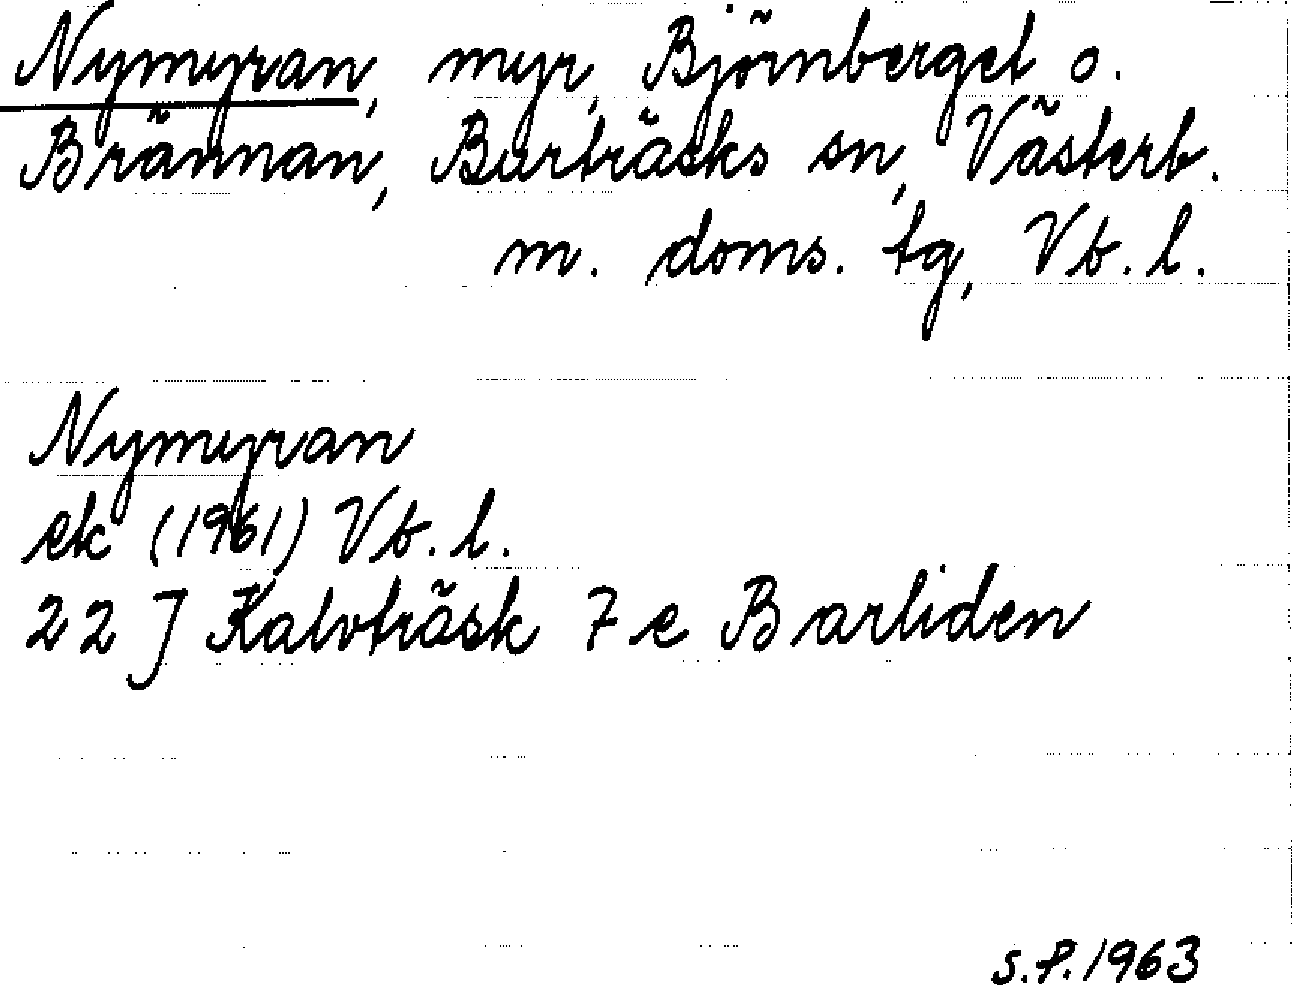 Nymyran, myr, Björnberget o.
Brännan, Burträsks sn, Västerb.
m. doms. tg, Vb. l.
Nymyran
ek (1961) Vb. l.
22 J Kalvträsk 7 e Barliden
S.P. 1963